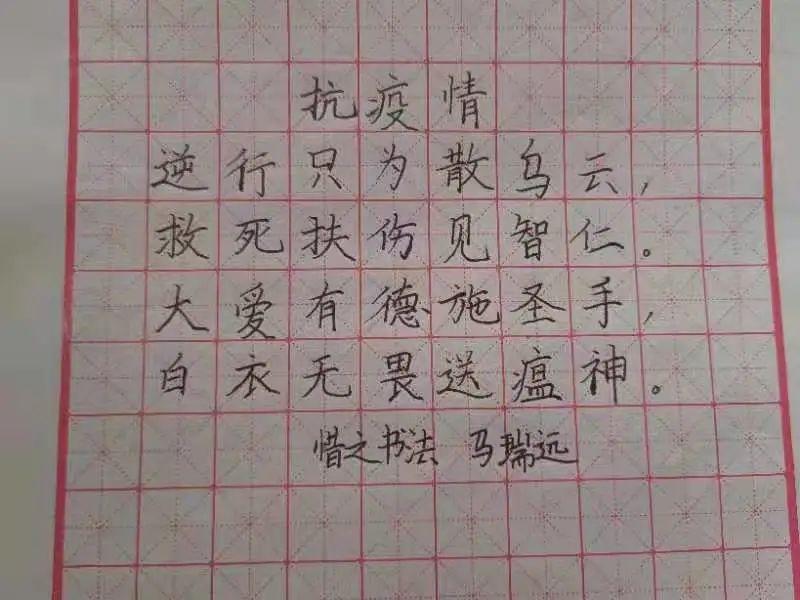 抗疫情
逆行只为散乌云,
救死扶伤见智仁。
大爱有德施圣手,
白衣无畏送瘟神。
惜之书法 马瑞远